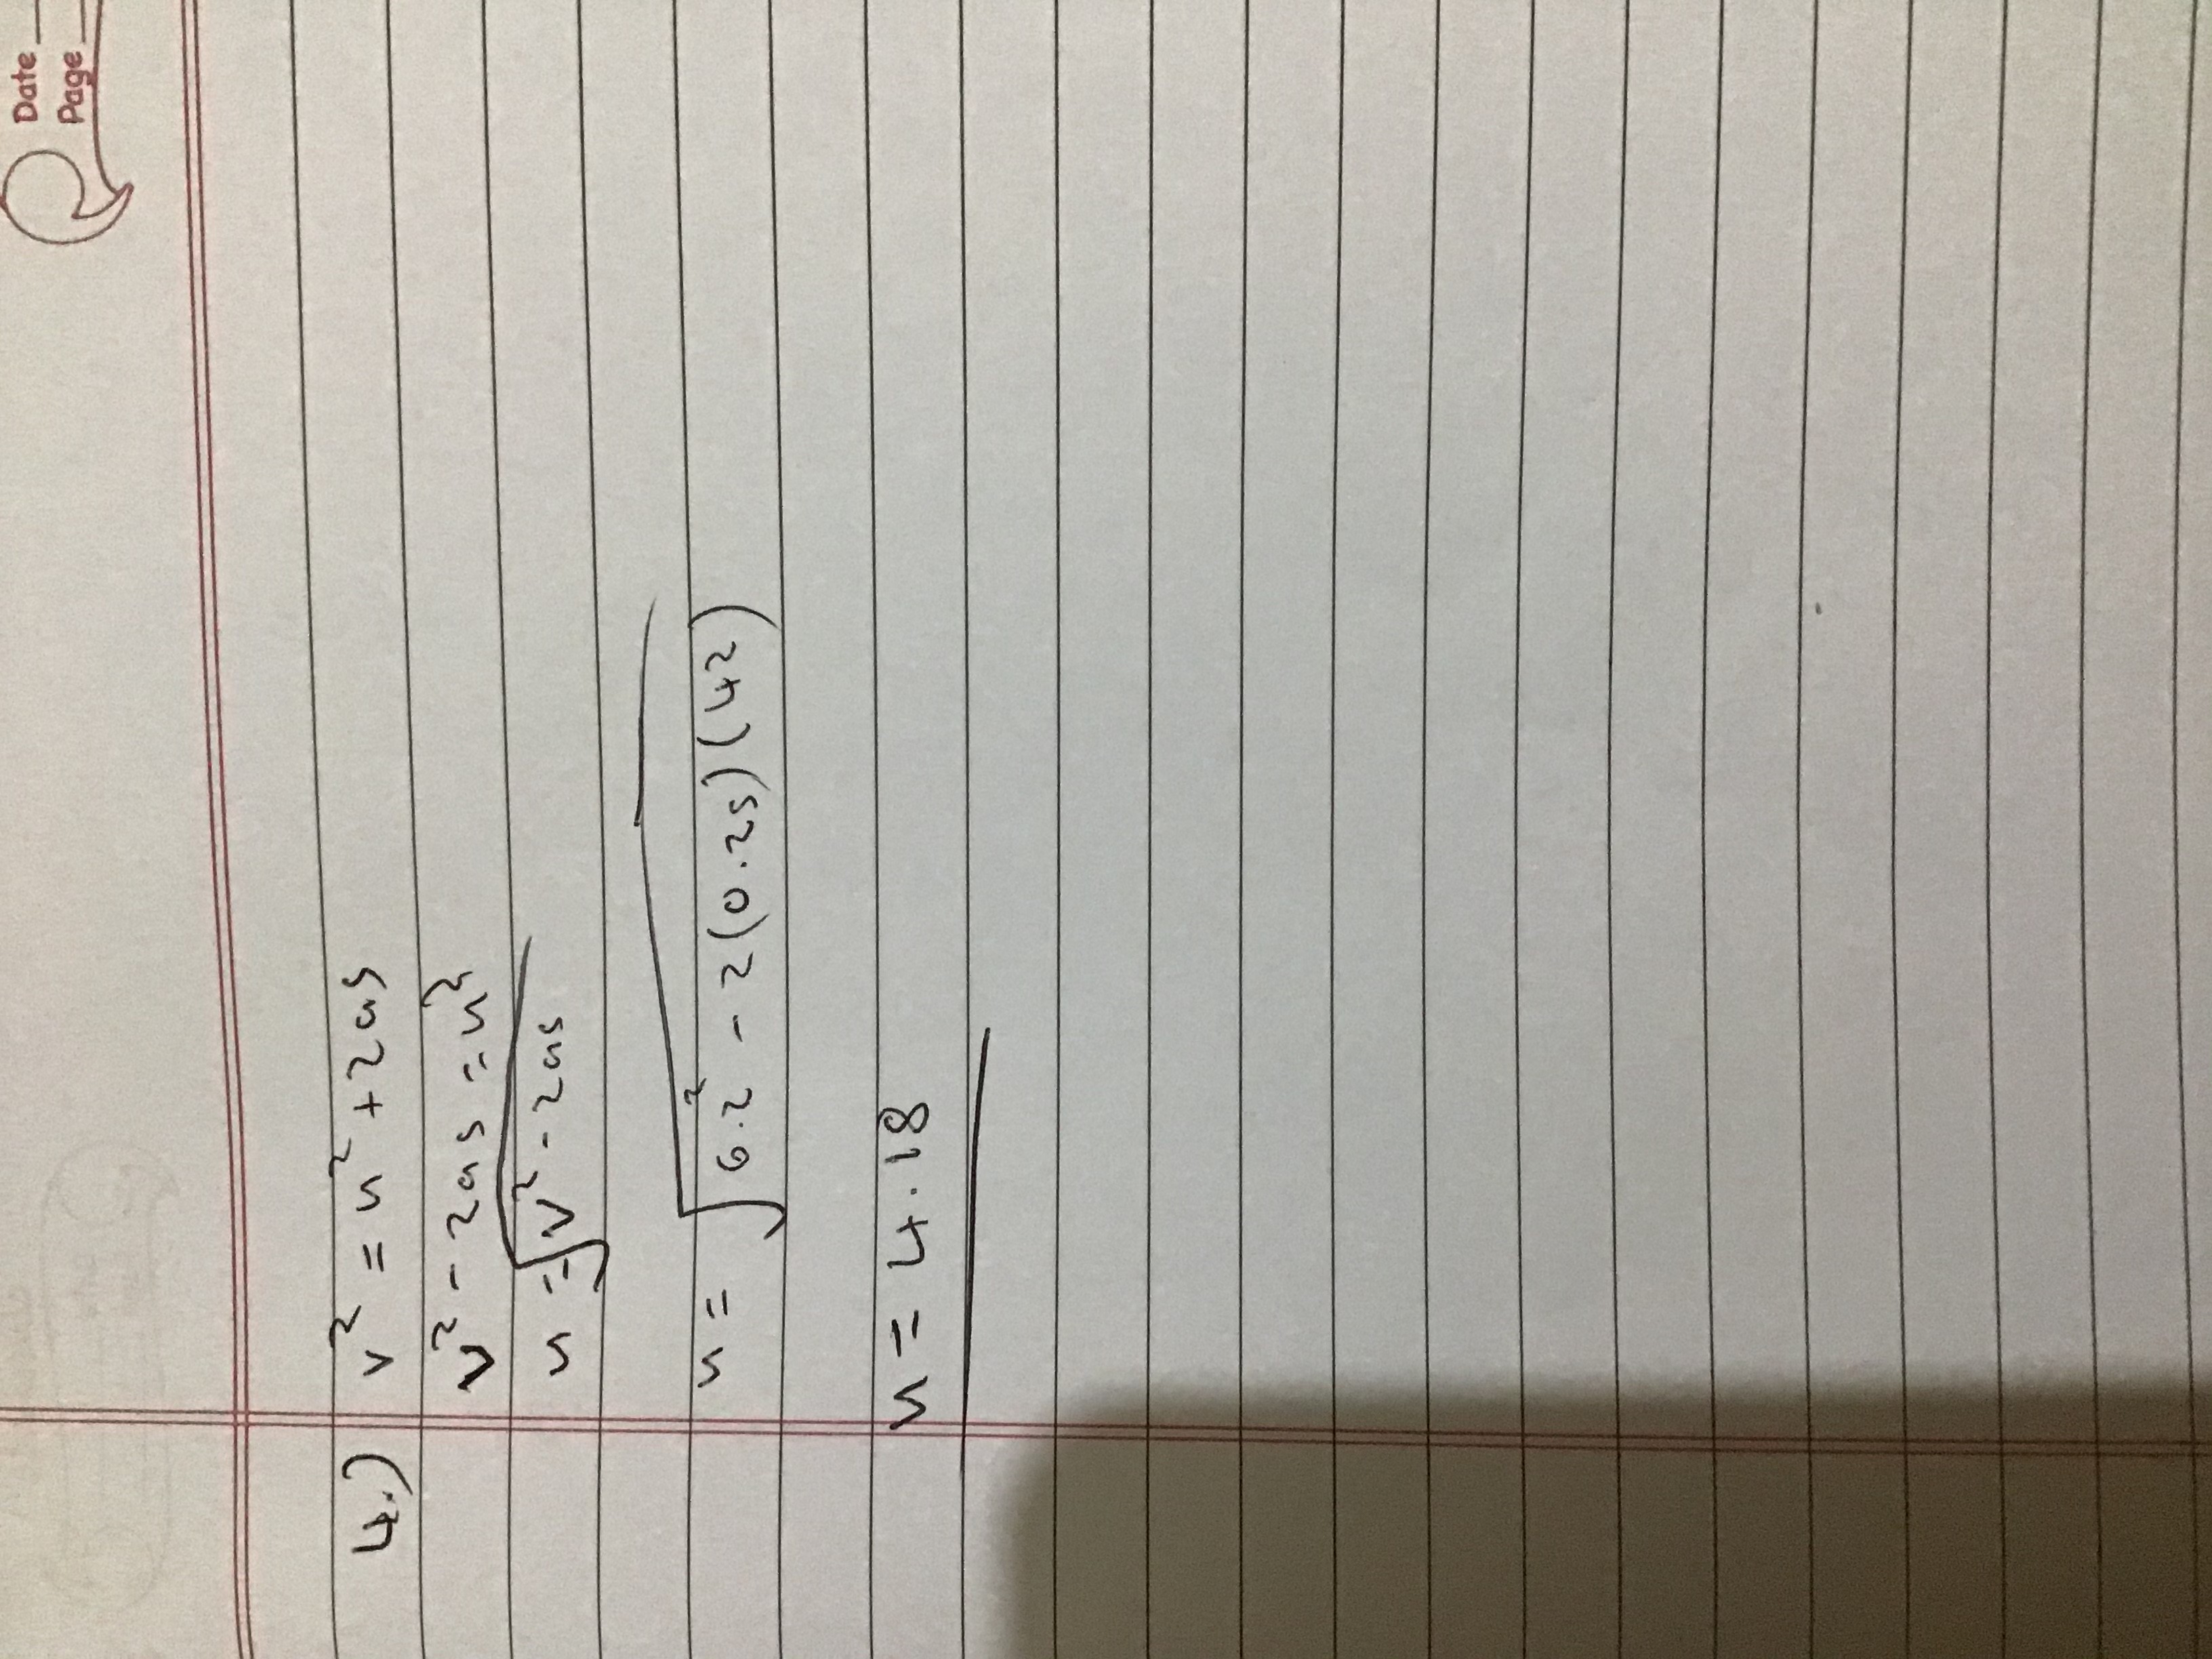 Date
Page
4.) v² = u² + 2as
v² - 2as = u²
u = √v² - 2as
u = √6.2² - 2(0.25)(42)
u = 4.18